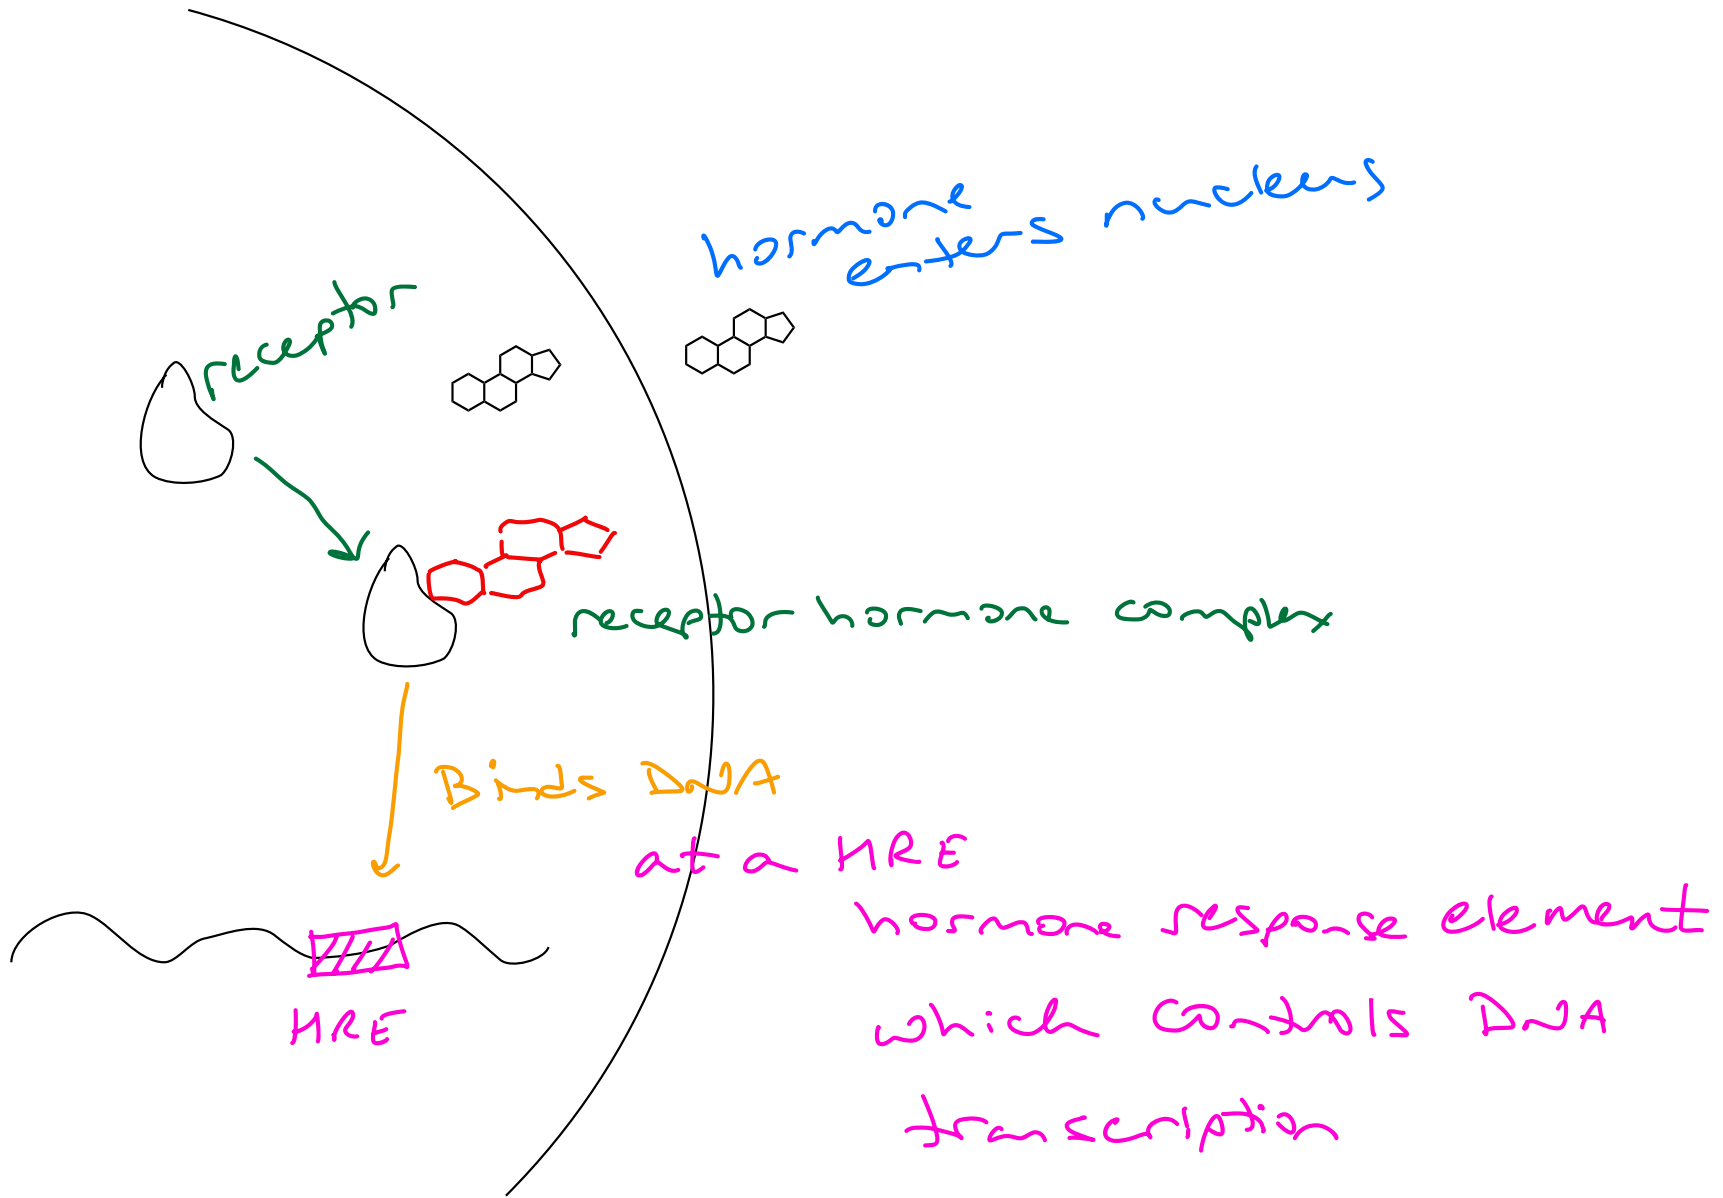 hormone
enters nucleus
receptor
receptor hormone complex
Binds DNA
at a HRE
hormone response element
HRE
which controls DNA
transcription